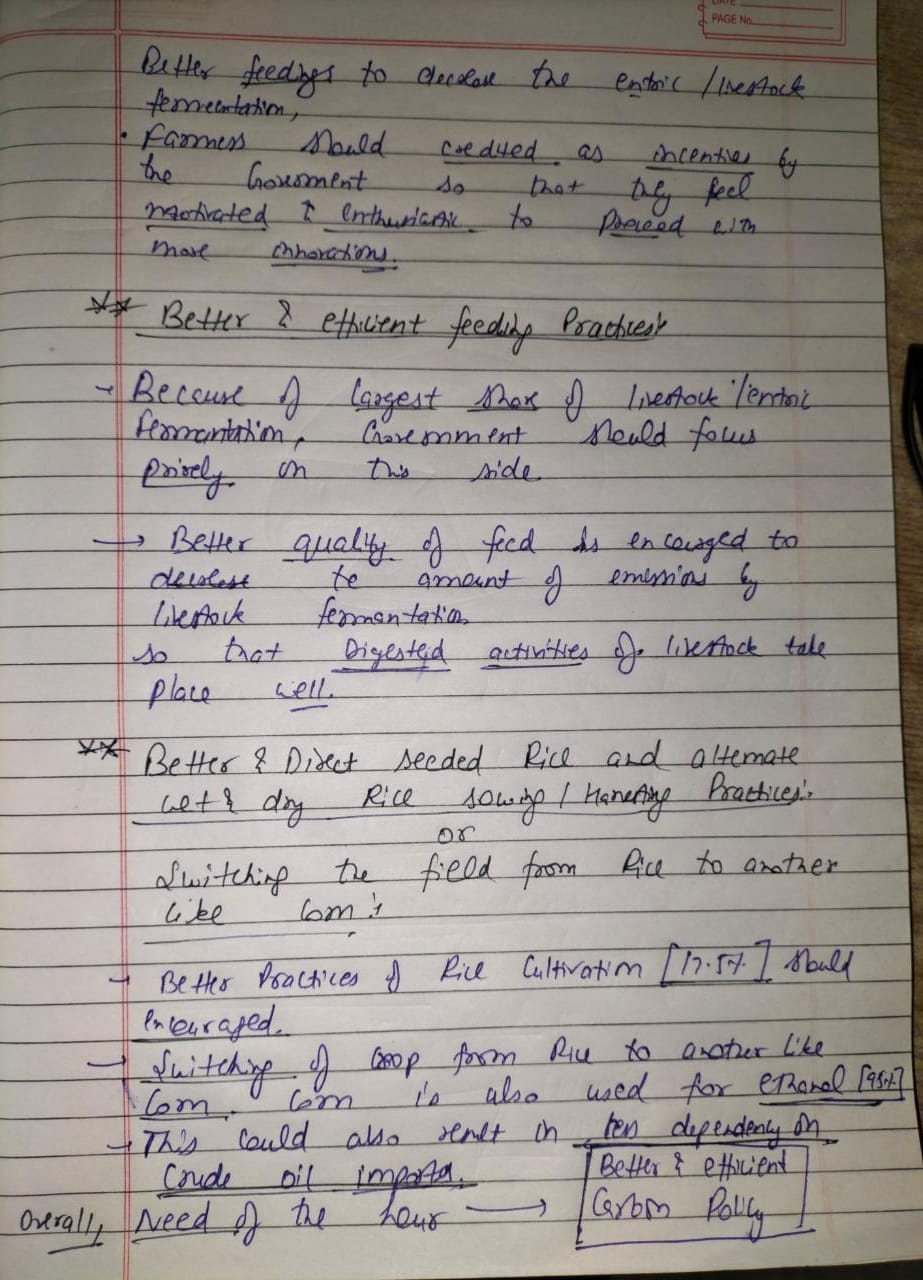 DATE
PAGE No.
Better feedings to decrease the entric / livestock
fermentation,
• Farmers should credited as incenties by
the Government so that they feel
motivated & enthusiastic to proceed with
more innovations.
** Better & efficient feeding Practices:
→ Because of largest share of livestock / entric
fermantation, Government should focus
on this side
→ Better quality of feed is encouraged to
decrease te amount of emissions by
livestock fermantation
so that Digested activities of livestock take
place well.
** Better & Direct seeded Rice and alternate
wet & dry Rice sowing / Harvesting Practices:-
or
Switching the field from Rice to another
like Corn :
→ Better Practices of Rice Cultivation [17.5%] should
encouraged.
→ Switching of Crop from Rice to another like
Corn. Corn is also used for ethanol [95%]
→ This could also result in less dependency on
Crude oil imports.
Overall, Need of the hour →
Better & efficient
Carbon Policy